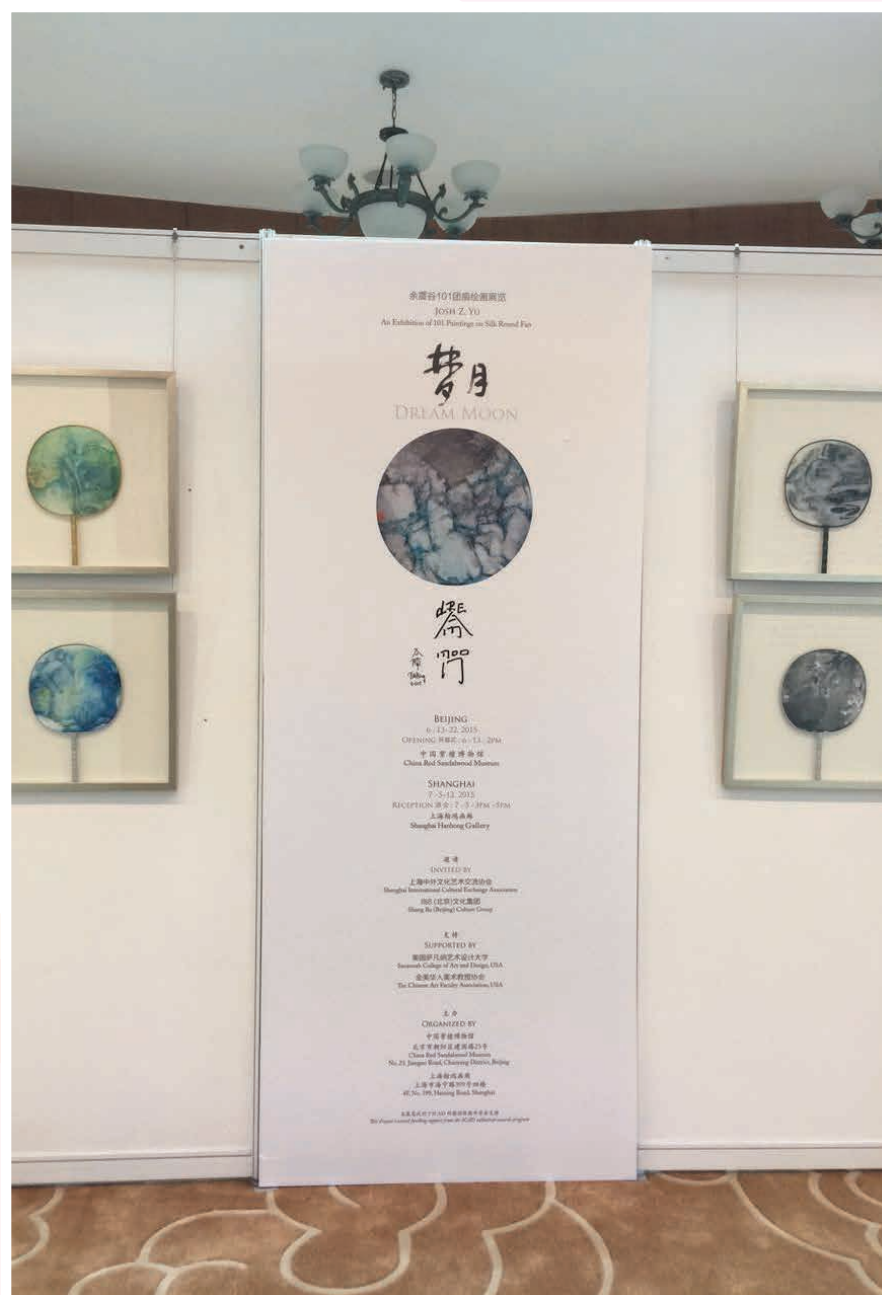 余震谷101团扇绘画展览
JOSH Z. YU
An Exhibition of 101 Paintings on Silk Round Fan
梦月
DREAM MOON
BEIJING
6 . 13-22, 2015
OPENING 开幕式 : 6 - 13 , 2PM
中国紫檀博物馆
China Red Sandalwood Museum
SHANGHAI
7 -5-12, 2015
RECEPTION 酒会 : 7 -5 -3PM -5PM
上海翰鸿画廊
Shanghai Hanhong Gallery
邀请
INVITED BY
上海中外文化艺术交流协会
Shanghai International Cultural Exchange Association
(北京)文化集团
Shang Ba (Beijing) Culture Group
支持
SUPPORTED BY
美国萨凡纳艺术设计大学
Savannah College of Art and Design, USA
全美华人美术教授协会
The Chinese Art Faculty Association, USA
主办
ORGANIZED BY
中国紫檀博物馆
北京市朝阳区建国路23号
China Red Sandalwood Museum
No. 23, Jianguo Road, Chaoyang District, Beijing
上海翰鸿画廊
上海市海宁路309号四楼
4F, No. 309, Haining Road, Shanghai